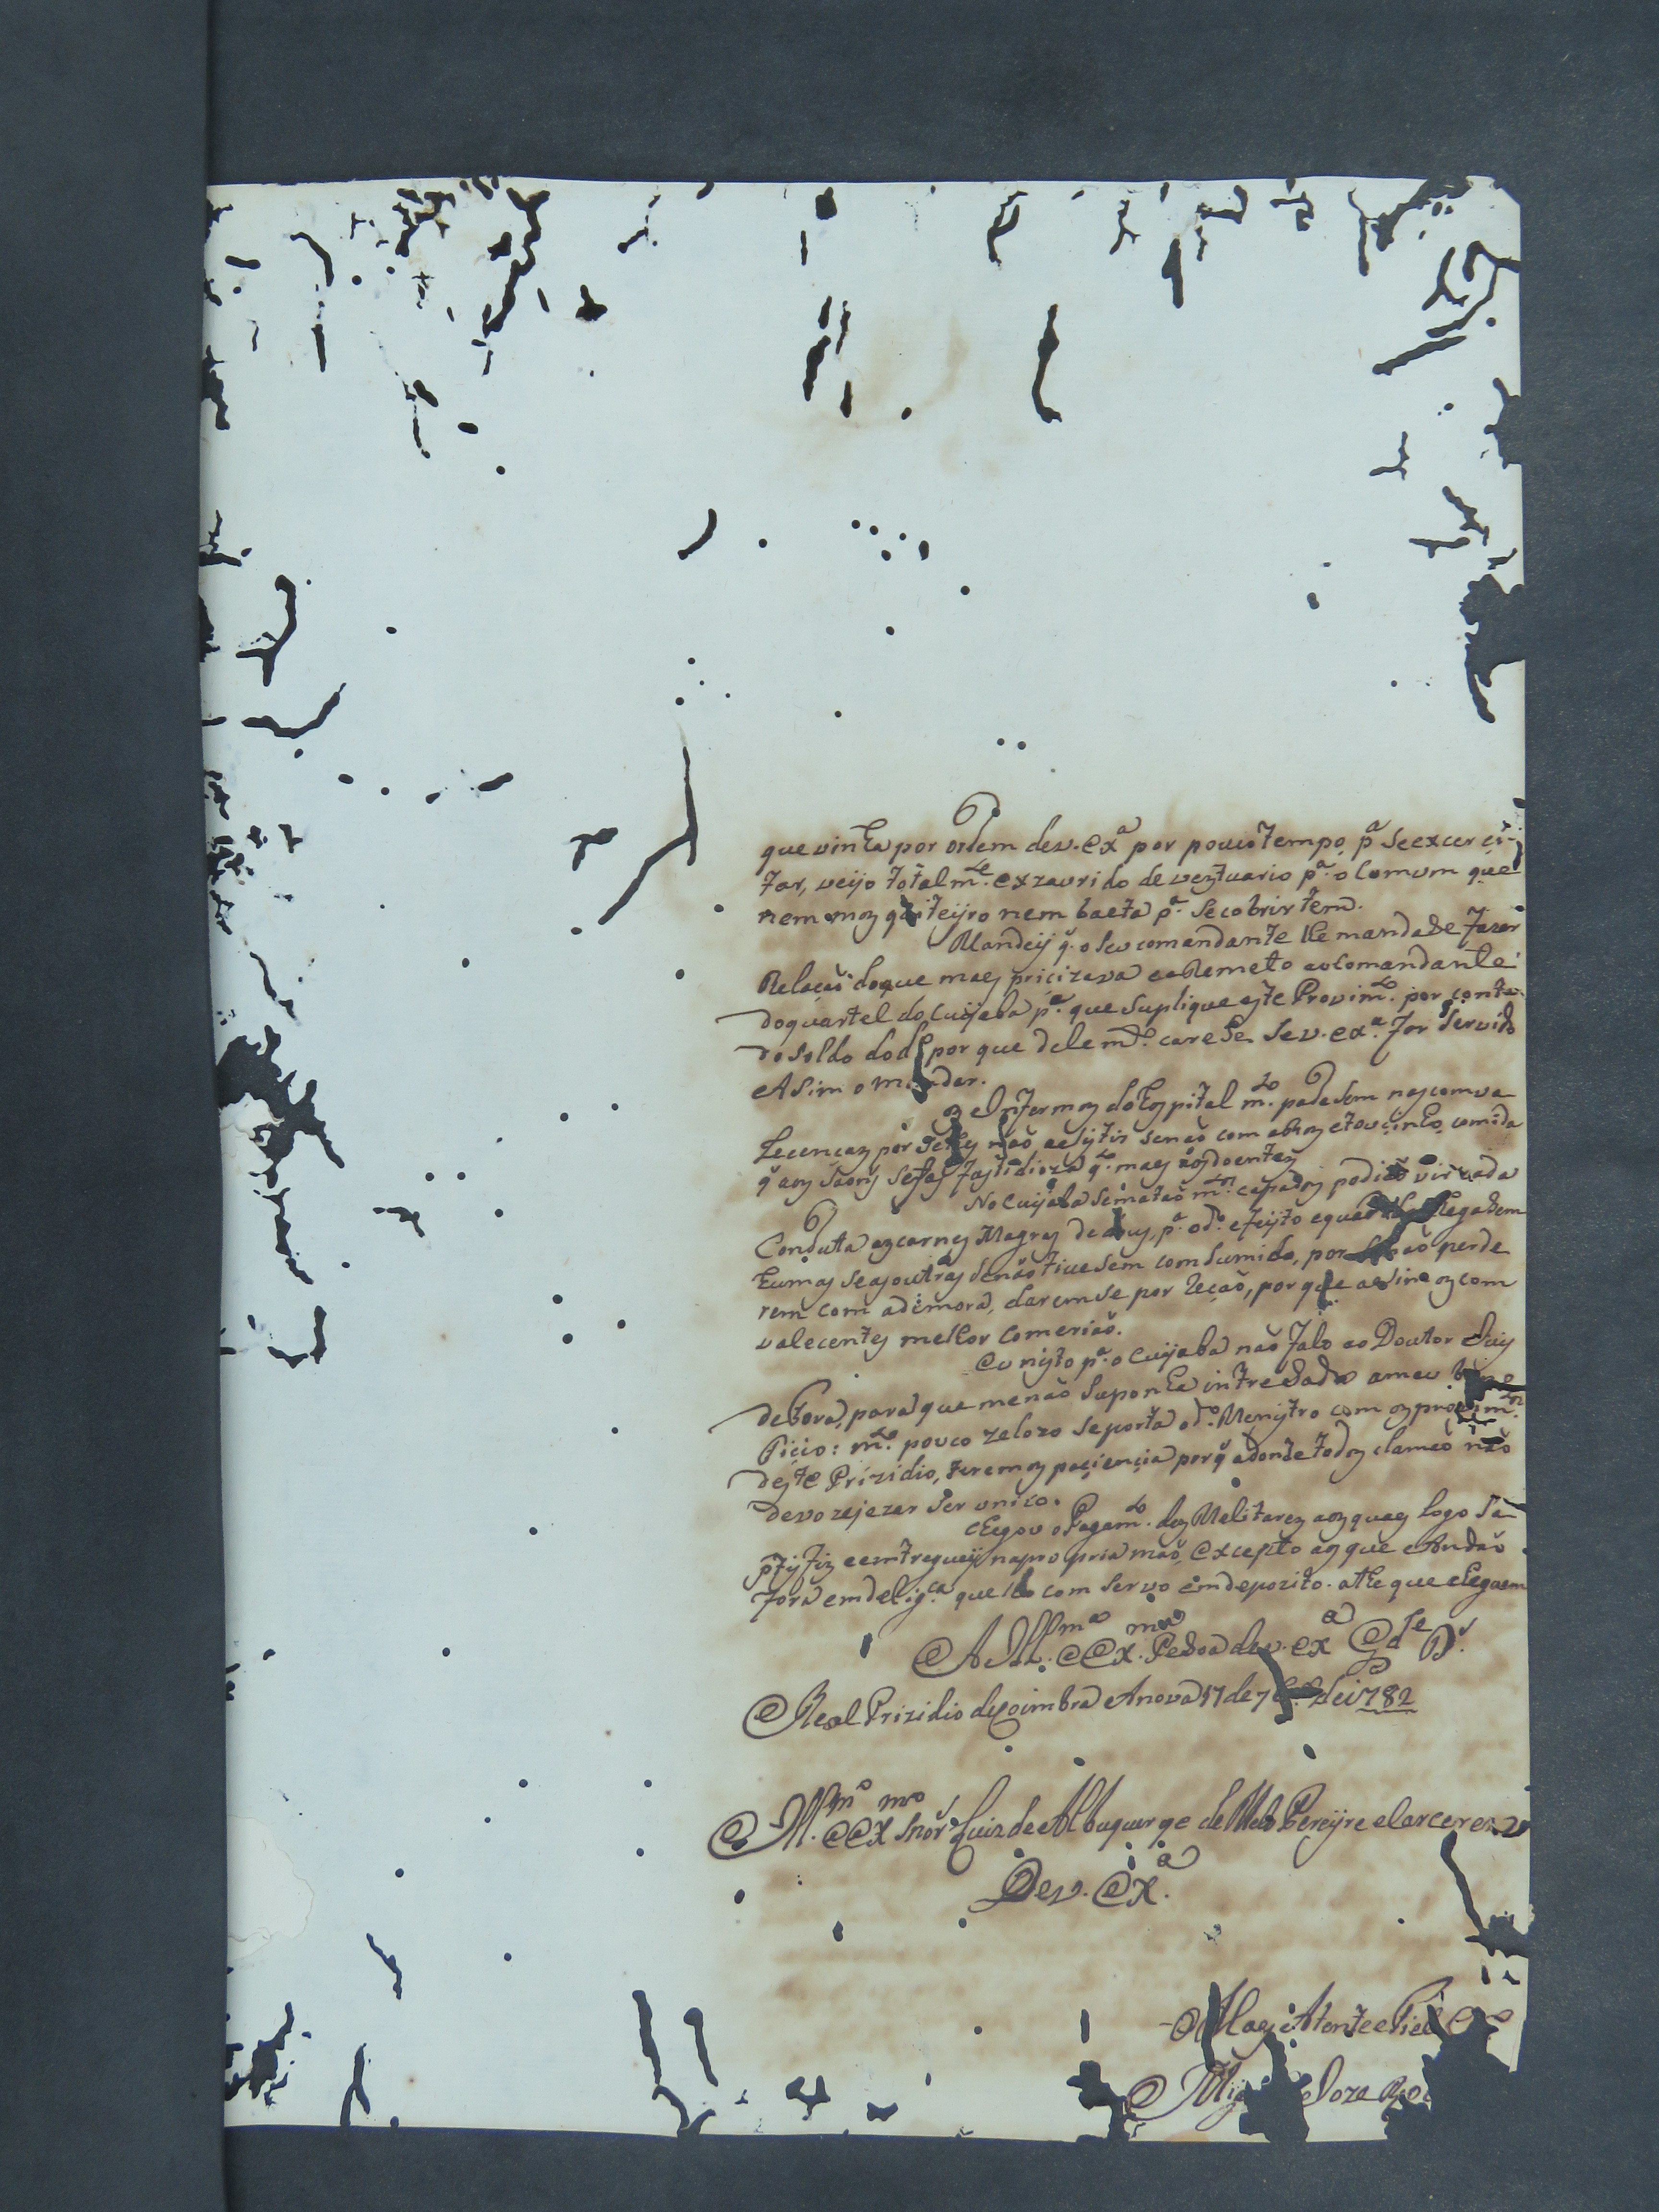 que vinha por ordem de v. Exª por pouco tempo, pª se excerci-
tar, veijo total mte. exzaurido de veztuario pª. o Comum que
nem moz teijro nem baeta pª. se cobrir tem.
Mandeij q̃. o seu comandante lhe mandase fazer
Relaçaõ do que maes pricizava e a Remeto ao Comandante
do quartel do Cuijaba pª. que suplique este Provimto. por conta
do soldo do d por que dele mto. carese, se v. exª. for servido
Asim o mandar.
Oz Infermoz do Hospital mto. padesem nas comva
lecençaz por naõ asistir senaõ com e toucinho, comida
q̃ aoz saons se faz fastidioza qto. maes aos doentes
No Cuijaba se mataõ mtos. capadoz podiaõ vir cada
Conduta az carnes Magras pª. o do. efeijto e quando chegasem
humas se as outras se naõ tivesem comsumido, por naõ perde
rem com a demora, darem se por reçaõ, por que asim oz com
valecentes melhor Comeriaõ.
Eu nisto pª. o Cuijaba naõ falo ao Doutor Juis
de fora, para que me naõ suponha intresado a meu
ficio: mto. pouco zelozo se porta o do. Menistro com oz provimtos.
deste Prizidio, teremoz paciencia porq̃ adonde todoz clamaõ naõ
devo rejezar ser unico.
Chegou o Pagamto. doz Melitarez aoz quaes logo
fiz e emtregueij na pro pria maõ, Excepto az que Andaõ
fora em delig.ca que lho com servo em depozito. athe que cheguem
A Illma. e Exma. Pesoa de v. Exª Gde Ds.
Real Prizidio de Coimbra A nova 17 de 7br.o de 1782
Illmo. e Exmo Snor Luiz de Albuquerqe de Mello Pereijra e Carceres
De v. Exª.
Maes Atento e Fiel
Mig Joze